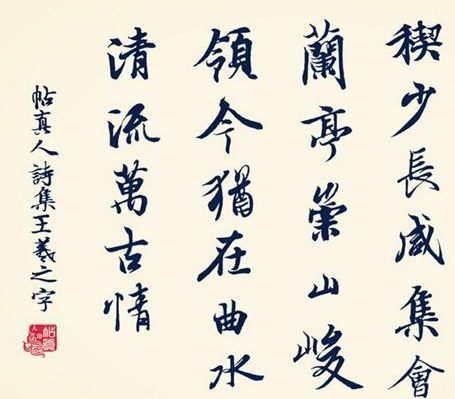 稧少長咸集會
蘭亭崇山峻
領今猶在曲水
清流萬古情
帖真人詩集王羲之字